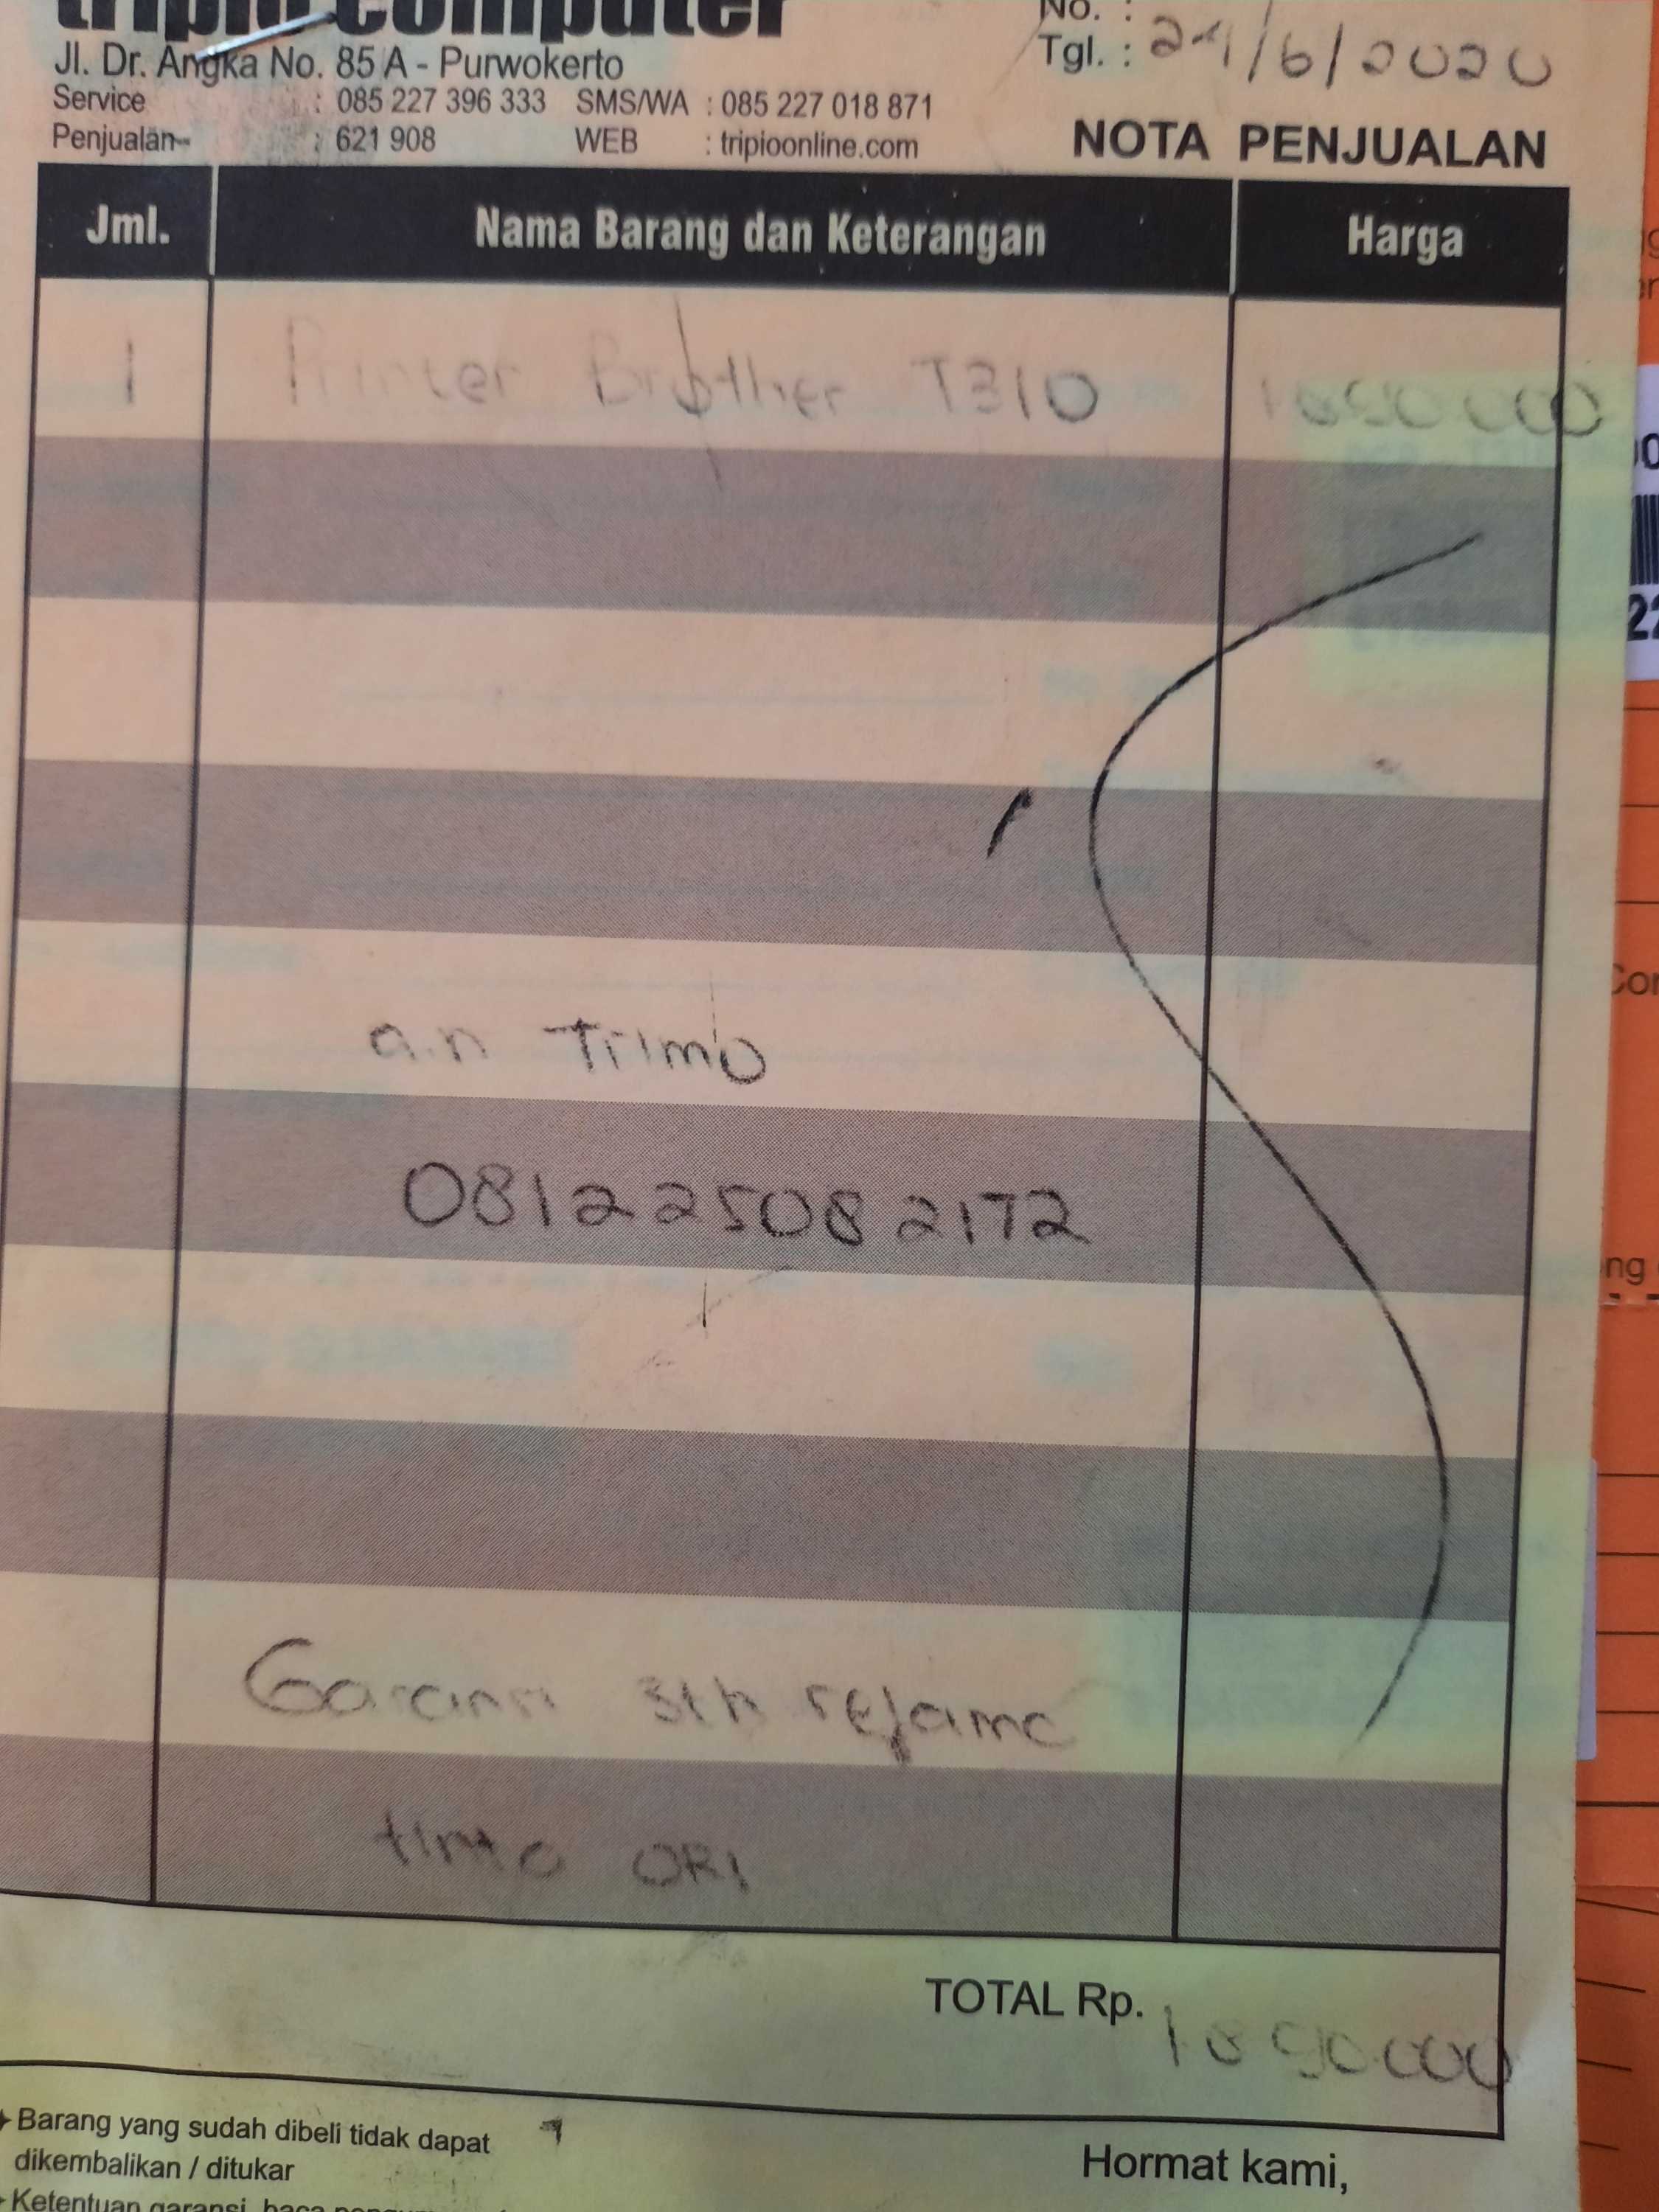 tripio computer
Jl. Dr. Angka No. 85 A - Purwokerto
Service : 085 227 396 333 SMS/WA : 085 227 018 871
Penjualan : 621 908 WEB : tripioonline.com
No. :
Tgl. : 24/6/2020
NOTA PENJUALAN
Jml. Nama Barang dan Keterangan Harga
1 Printer Brother T310 1890000
a.n Trimo
081225082172
Garansi 3th selama
tinta ORI
TOTAL Rp. 1890000
Barang yang sudah dibeli tidak dapat
dikembalikan / ditukar
Ketentuan garansi, baca
Hormat kami,